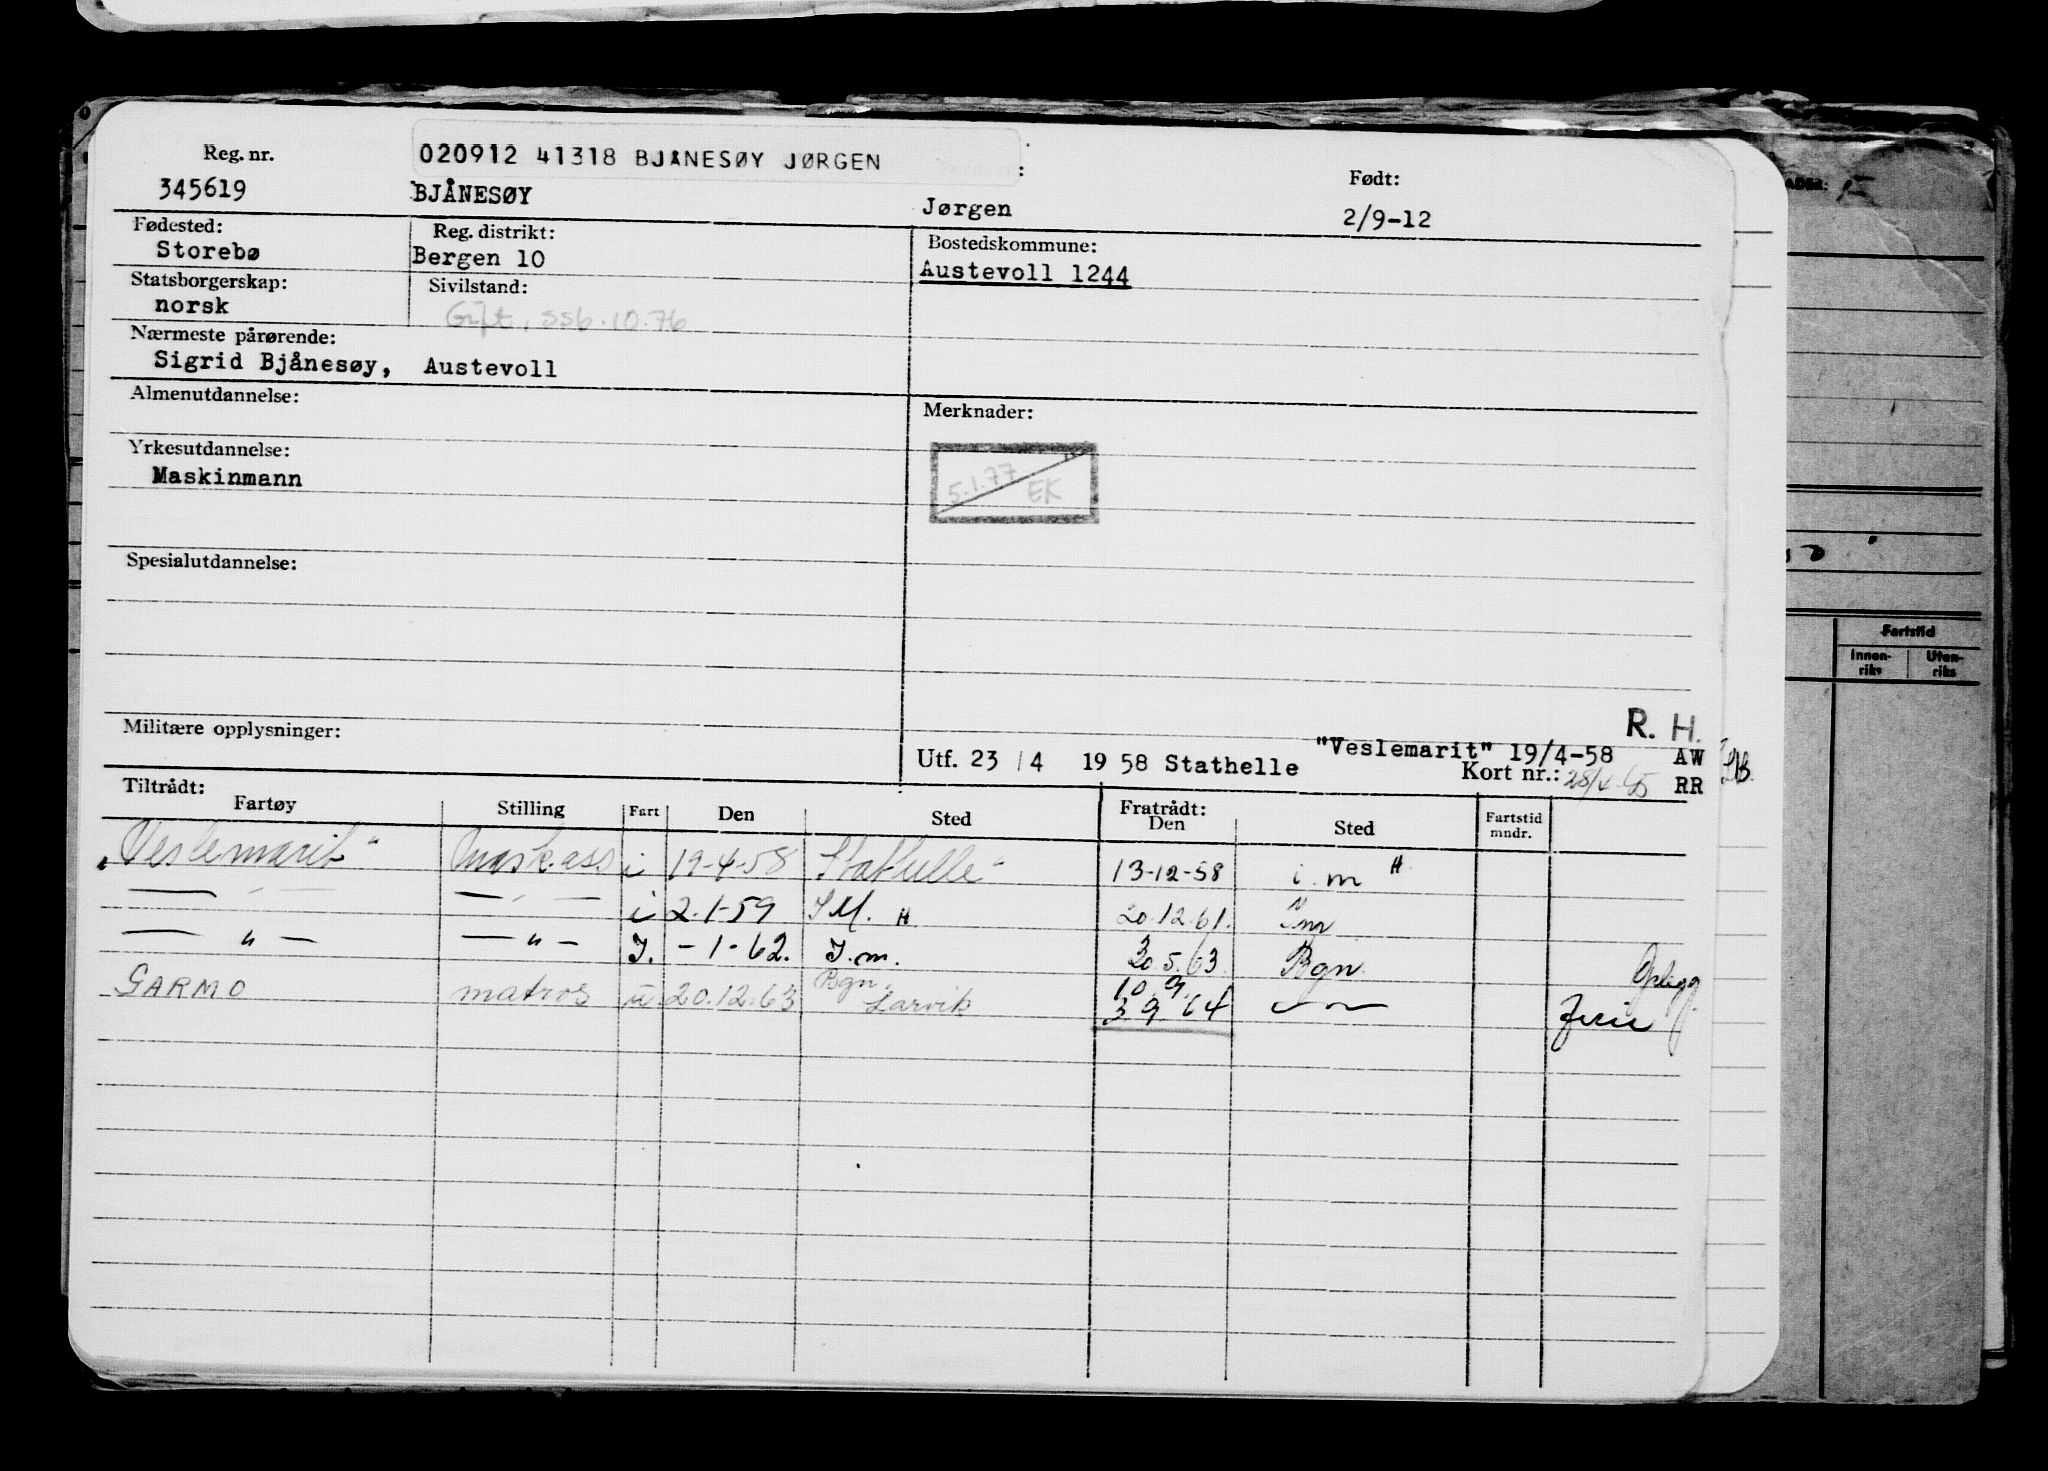 Reg. nr. 020912 41318 BJÅNESØY JØRGEN : Født:
345619 BJÅNESØY Jørgen 2/9-12
Fødested: Reg. distrikt: Bostedskommune:
Storebø Bergen 10 Austevoll 1244
Statsborgerskap: Sivilstand:
norsk Gift, ssb.10.76
Nærmeste pårørende:
Sigrid Bjånesøy, Austevoll
Almenutdannelse: Merknader:
Yrkesutdannelse:
Maskinmann 5.1.77 EK
Spesialutdannelse:
R. H.
Militære opplysninger: "Veslemarit" 19/4-58 AW
Utf. 23/4 1958 Stathelle Kort nr.: 28/4-65 RR
Tiltrådt: Fratrådt:
Fartøy Stilling Fart Den Sted Den Sted Fartstid mndr.
"Veslemarit" Mask.ass i 19-4-58 Stathelle 13-12-58 i.m H
— " — — " — i 2.1-59 I M. H 20.12.61. i m
— " — — " — I. -1-62. I.m. 30.5.63 Bgn. Opplegg.
GARMO matros u. 20.12.63 Bgn. Larvik 10.9. 3 9 64 — " — Ferie
ADER:
Fartstid
Innen-riks Uten-riks